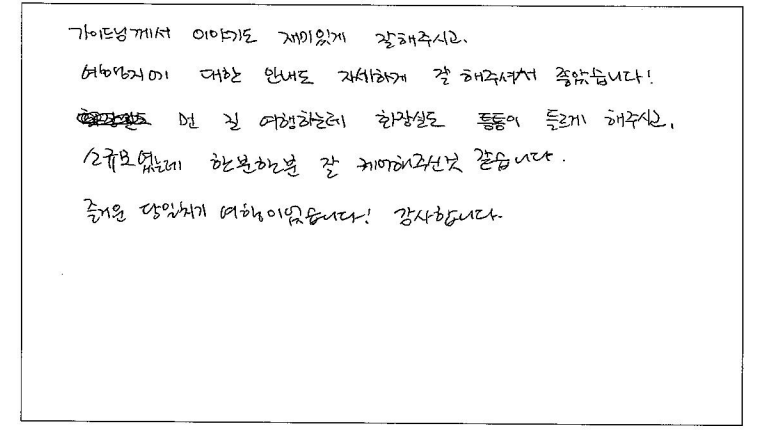 가이드님께서 이야기도 재미있게 잘해주시고.
여행지에 대한 안내도 자세하게 잘 해주셔서 좋았습니다!
먼 길 여행하는데 화장실도 틈틈이 들르게 해주시고,
소규모였는데 한분한분 잘 케어해주신것 같습니다.
즐거운 당일치기 여행이었습니다! 감사합니다.